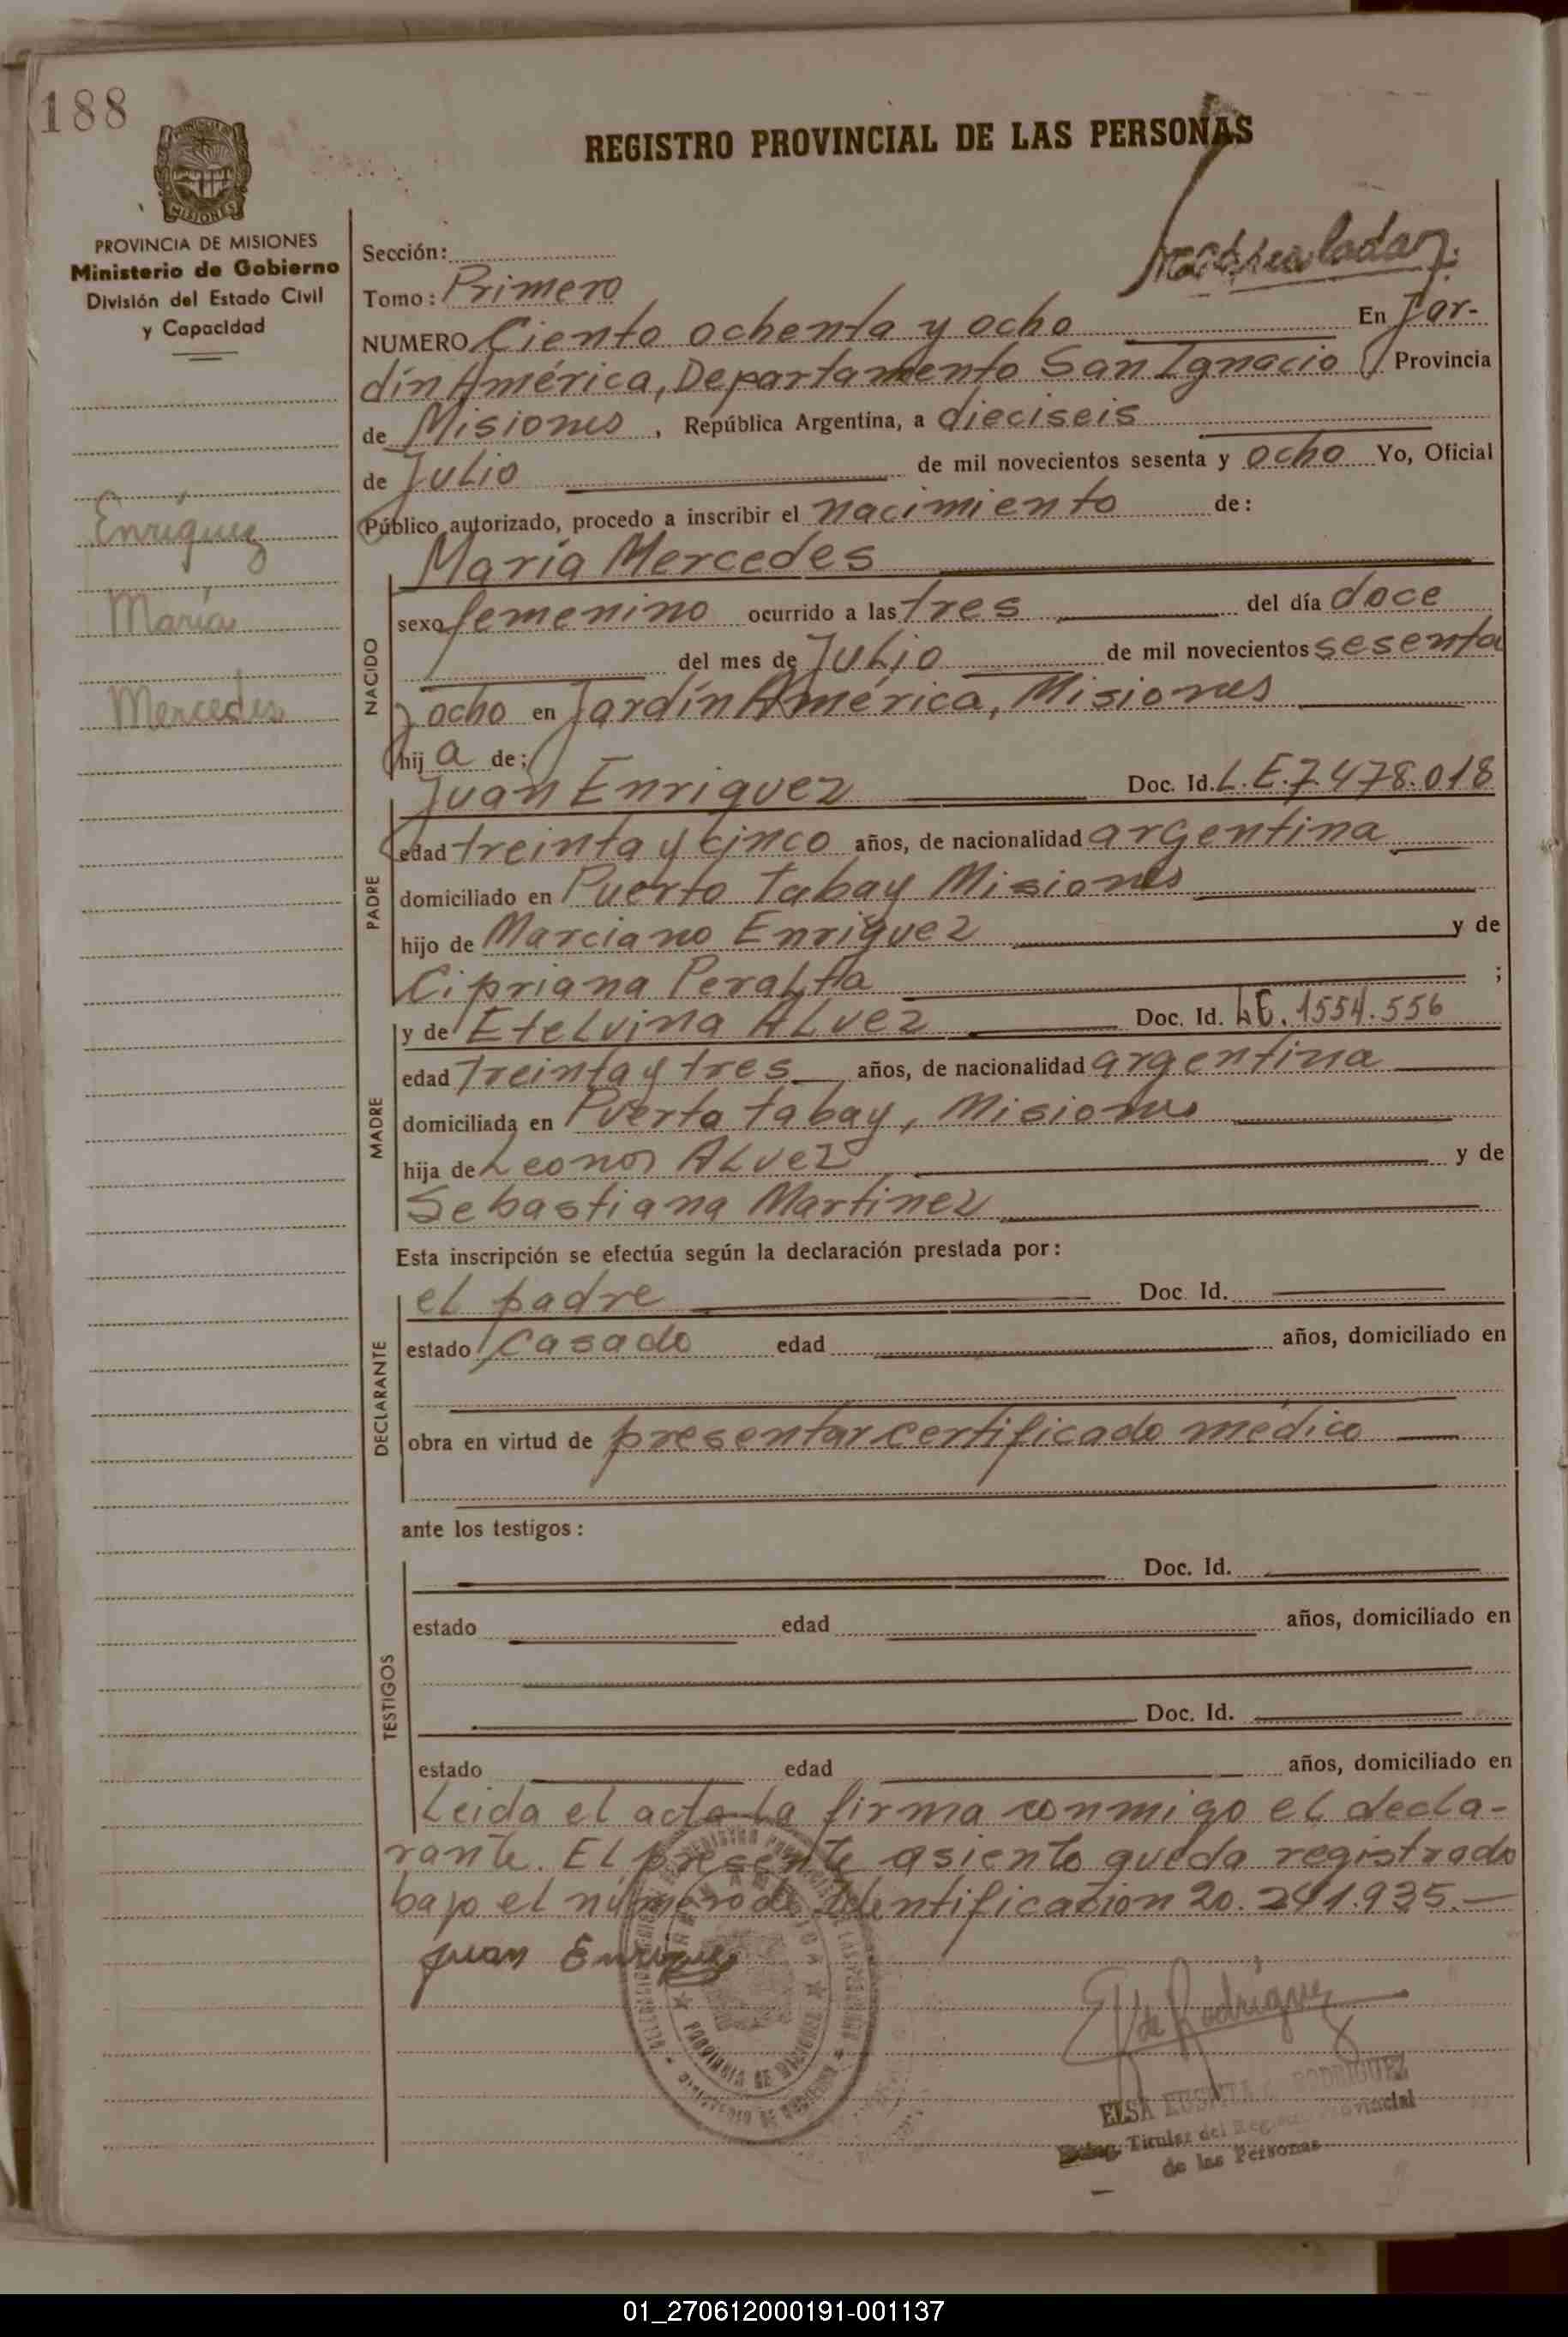 188
REGISTRO PROVINCIAL DE LAS PERSONAS
MISIONES
PROVINCIA DE MISIONES
Ministerio de Gobierno
División del Estado Civil
y Capacidad
Enríquez
María
Mercedes
Sección:
Tomo: Primero
NUMERO Ciento ochenta y ocho En Jar-
dín América, Departamento San Ignacio, Provincia
de Misiones, República Argentina, a dieciseis
de Julio de mil novecientos sesenta y ocho Yo, Oficial
Público autorizado, procedo a inscribir el nacimiento de:
María Mercedes
NACIDO
sexo femenino ocurrido a las tres del día doce
del mes de Julio de mil novecientos sesenta
y ocho en Jardín América, Misiones
hija de;
Juan Enriquez Doc. Id. L.E. 7.478.018
PADRE
edad treinta y cinco años, de nacionalidad argentina
domiciliado en Puerto Tabay Misiones
hijo de Marciano Enriquez y de
Cipriana Peralta ;
y de Etelvina ALvez Doc. Id. LC. 1554.556
MADRE
edad Treinta y tres años, de nacionalidad argentina
domiciliada en Puerto tabay, Misiones
hija de Leonor ALvez y de
Sebastiana Martinez
Esta inscripción se efectúa según la declaración prestada por:
el padre Doc. Id.
DECLARANTE
estado casado edad años, domiciliado en
obra en virtud de presentar certificado médico
ante los testigos:
TESTIGOS
Doc. Id.
estado edad años, domiciliado en
Doc. Id.
estado edad años, domiciliado en
Leida el acta la firma conmigo el decla-
rante. El presente asiento queda registrado
bajo el número de Identificación 20.241.935.—
Juan Enriquez
E V de Rodríguez
PROVINCIA DE MISIONES
MINISTERIO DE GOBIERNO
ELSA RODRIGUEZ
Titular del Registro Provincial
de las Personas
01_270612000191-001137